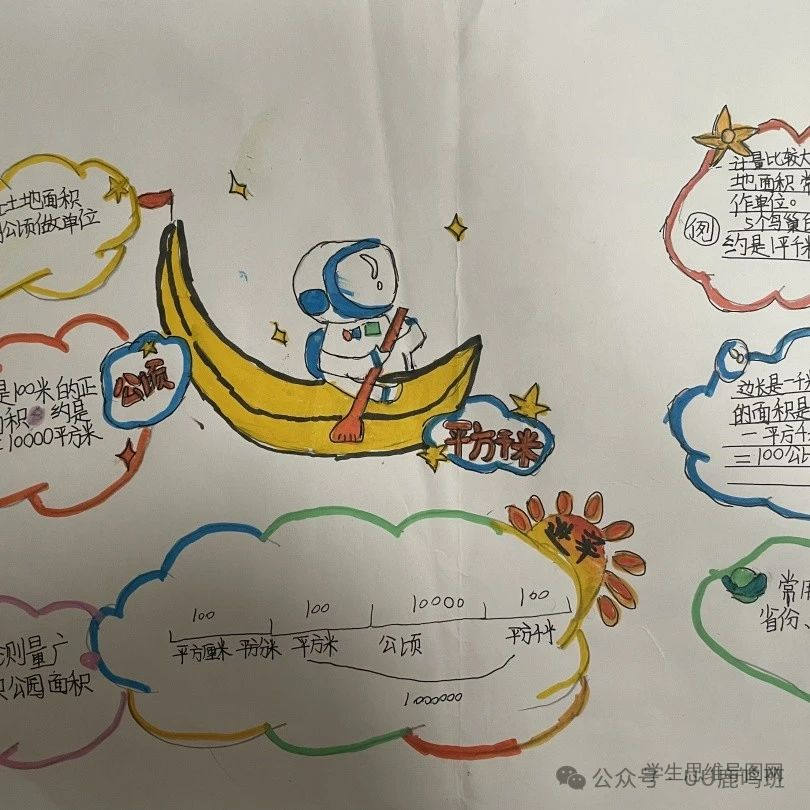 土地面积
公顷做单位
是100米的正
面积 约是
10000平方米
公顷
平方千米
计量比较大
地面积常
作单位。
5个鸟巢
约是1平千米
例
边长是一千
的面积是
一平方千
=100公
进率
100 100 10000 100
平方厘米 平方分米 平方米 公顷 平方千米
1000000
测量广
公园面积
常用
省份、
学生思维导图网
公众号
鹿鸣班